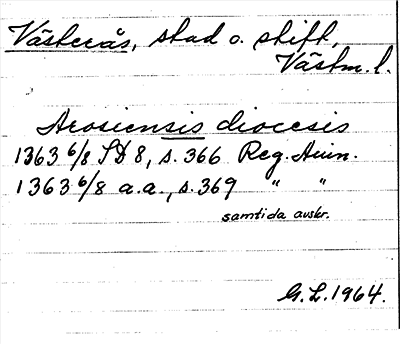 Västerås, stad o. stift,
Västm. l.
Arosiensis diocesis
1363 6/8 SD 8, s. 366 Reg. Avin.
1363 6/8 a.a., s. 369 " "
samtida avskr.
G.L. 1964.